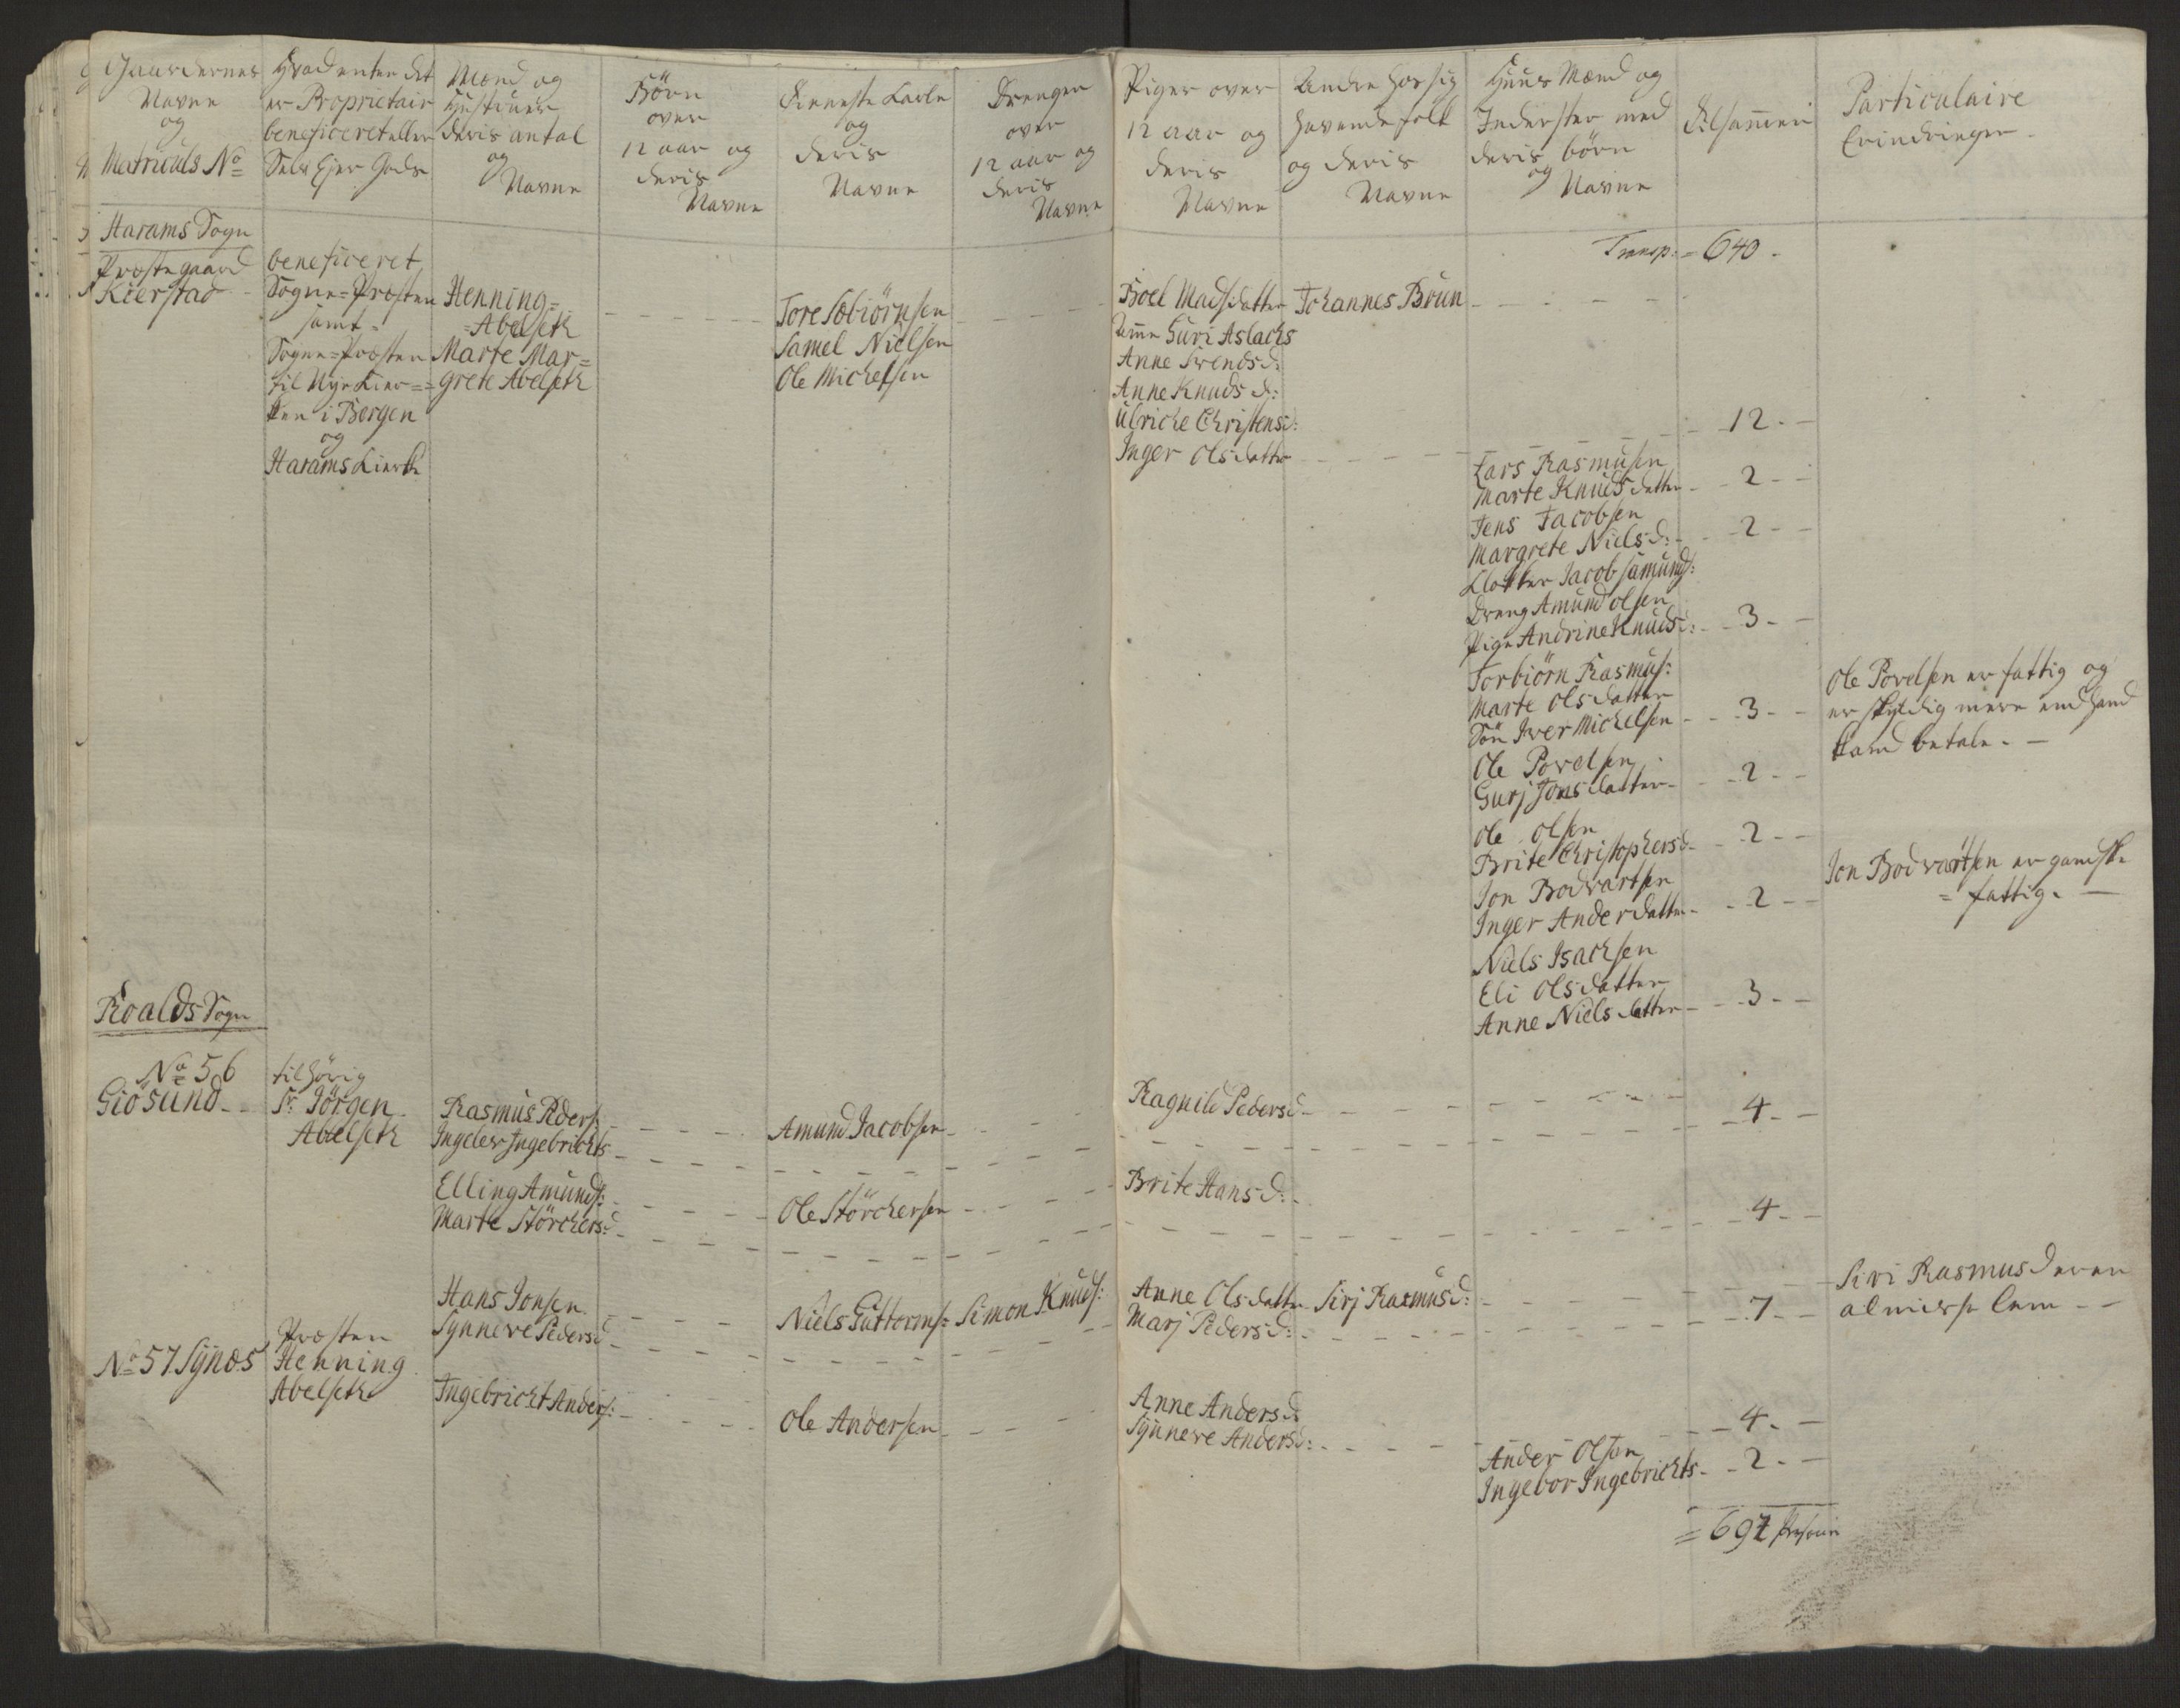 Gaardernes
Navne
og
Matriculs No
Hvad enten det
er Proprietair
beneficeret eller
Selv Ejer Gods
Mænd og
Hustruer
deris antal
og
Navne
Börn
over
12 aar og
deris
Navne
Tienneste Karle
og
deris
Navne
Drenger
over
12 aar og
deris
Navne
Piger over
12 aar og
deris
Navne
Andre hos sig
havende folk
og deris
Navne
Huus Mænd og
Inderster med
deris börn
og Navne
Tilsammen
Particulaire
Erindringer
Harams Sogn
Transp: = 640 -
Præstegaard
Kierstad
beneficeret
Sogne=Præsten
samt =
Sogne=Præsten
til Nye Kier==
ken i Bergen
og
Harams Kierke
Henning=
=Abelseth
Marte Mar=
grete Abelseth
Tore Sæbiörnsen
Samel Nielsen
Ole Michelsen
Boel Madsdatter
Amme Guri Aslachs
Anne Svends d:
Anne Knuds d:
Ulriche Christens d:
Inger Olsdatter
Johannes Brun
12 -
Lars Rasmusen
Marte Knudsdatter - 2 -
Jens Jacobsen
Margrete Niels d: - 2 -
Klokker Jacob Samunds:
Dreng Amund Olsen
Pige Andrine Knuds d: - 3 -
Torbiörn Rasmus:
Marte Olsdatter
Sön Iver Michelsen - 3 -
Ole Povelsen
Gurj Jonsdatter - 2 -
Ole Povelsen er fattig og
er skyldig mere end hand
kand betale. -
Ole Olsen
Brite Christophersd - 2 -
Jon Bodvartsen
Inger Anderdatter - 2 -
Jon Bodvartsen er gandske
= fattig. -
Niels Isachsen
Eli Olsdatter
Anne Nielsdatter - 3 -
Roalds Sogn
No 56
Giösund
tilhörig
Sr Jörgen
Abelseth
Rasmus Peders:
Ingeler Ingebrichts
Amund Jacobsen
Ragnild Pedersd
4 -
Elling Amunds:
Marte Störchers:d
Ole Störchersen
Brite Hans d:
4 -
Hans Jonsen
Synneve Pedersd
Niels Guttorms:
Simon Knuds:
Anne Olsdatter
Marj Peders d:
Sirj Rasmus d:
7 -
Siri Rasmusd er en
almisse lem -
No 57. Synæs
Præsten
Henning
Abelseth
Ingebricht Anders:
Ole Andersen
Anne Anders d
Synneve Anders d:
4 -
Ander Olsen
Ingebor Ingebrichts - 2 -
= 697 Persouner